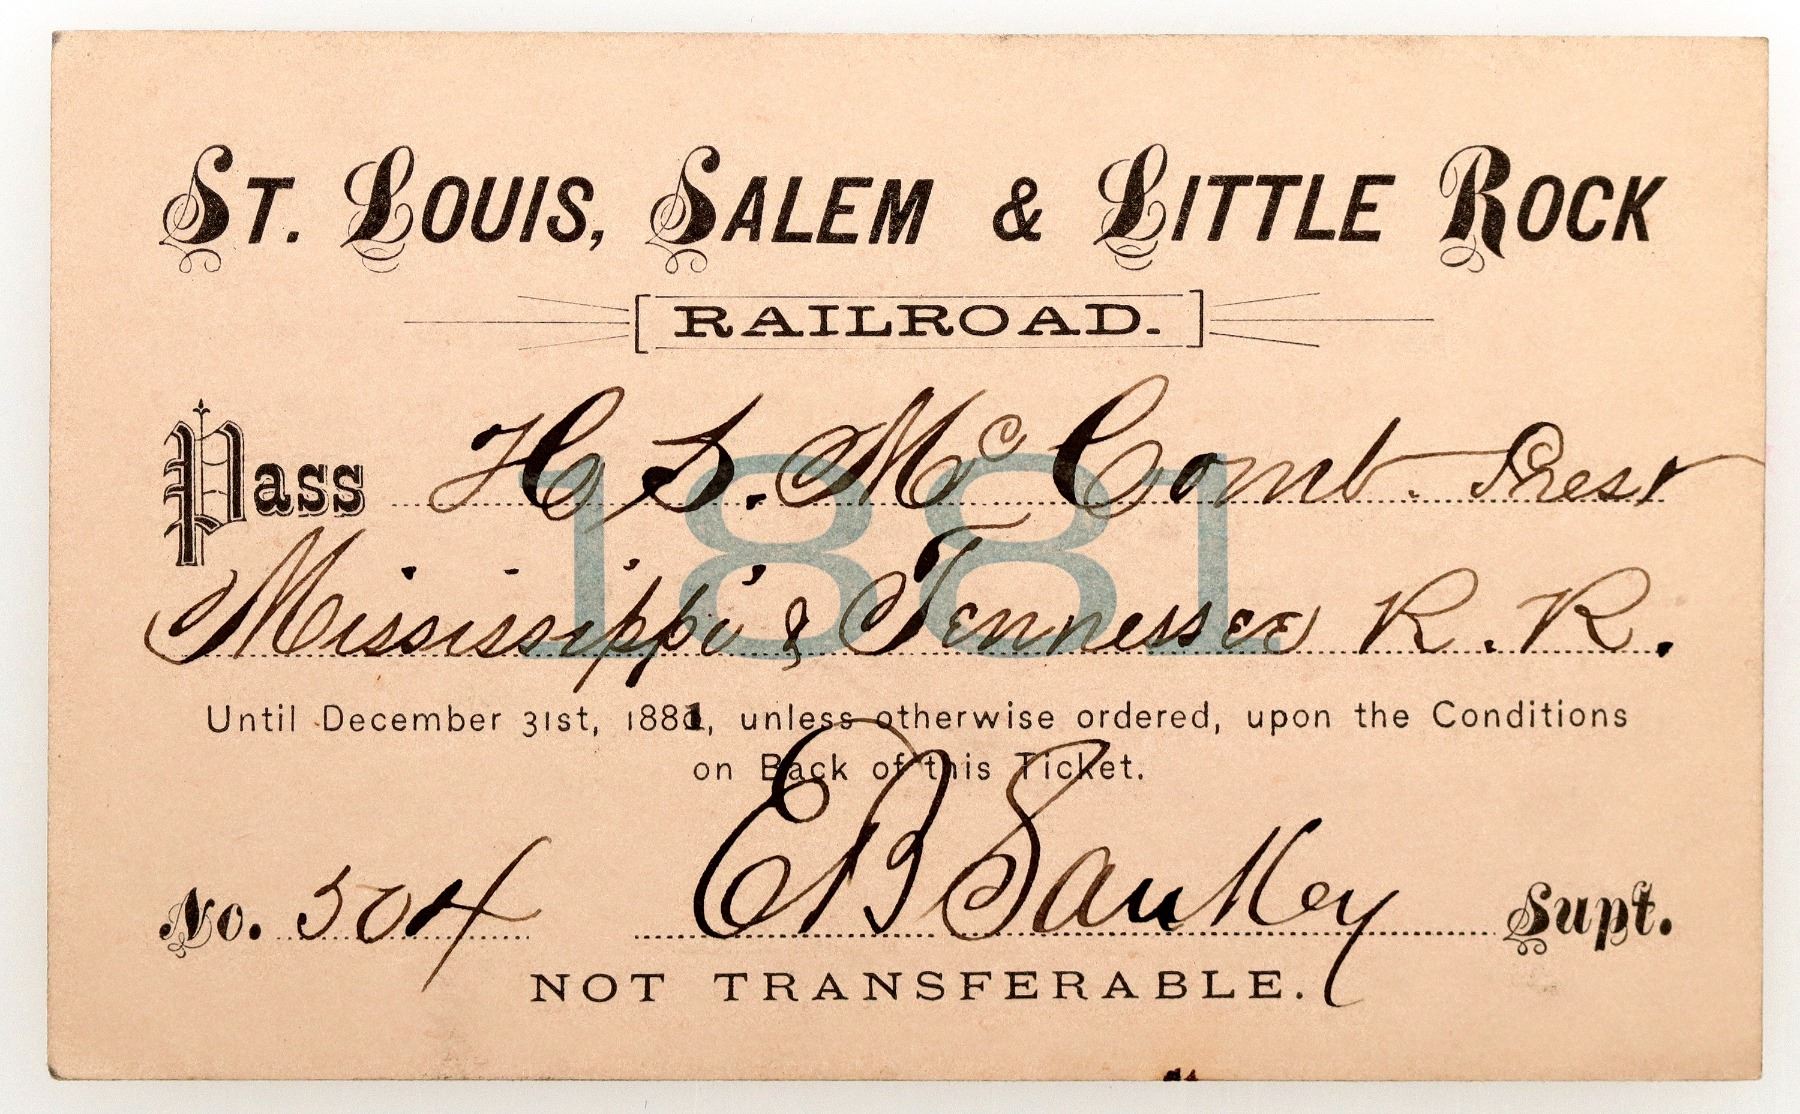 ST. LOUIS, SALEM & LITTLE ROCK
RAILROAD.
Pass H. S. Mc Comb. Prest
1881
Mississippi & Tennessee R. R.
Until December 31st, 1881, unless otherwise ordered, upon the Conditions
on Back of this Ticket.
No. 504 E B Sankey Supt.
NOT TRANSFERABLE.